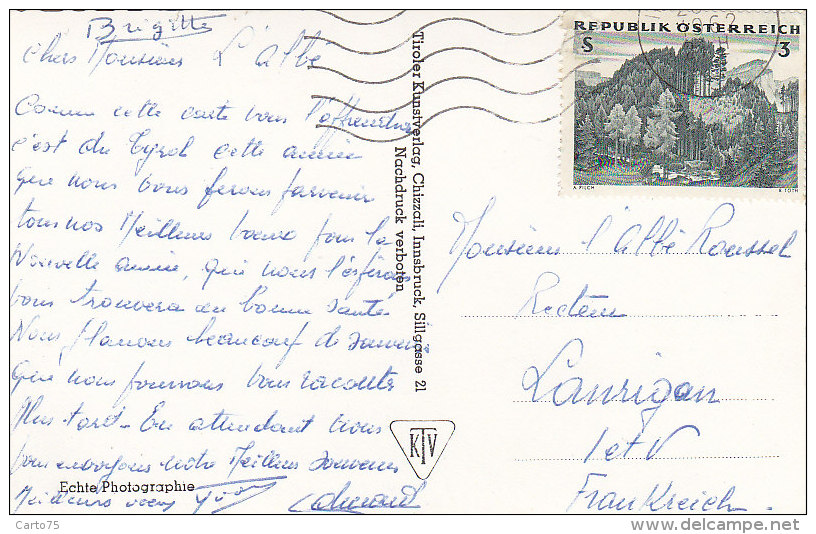 Brigitte
Cher Monsieur L'abbé
Comme cette carte vous l'apprendra
c'est du Tyrol cette année
que nous vous ferons parvenir
tous nos Meilleurs voeux pour la
Nouvelle année, que nous l'espérons
vous trouvera en bonne santé
Nous beaucoup de souvenirs
que nous pourrons vous raconter
Plus tard - En attendant nous
vous envoyons notre Meilleur souvenir
Meilleurs voeux
Echte Photographie
Tiroler Kunstverlag, Chizzali, Innsbruck, Sillgasse 21
Nachdruck verboten
KTV
REPUBLIK ÖSTERREICH
S 3
A. PILCH R. TOTH
Monsieur l'Abbé Roussel
Recteur
Lanrigan
I et V
Frankreich
Carto75
delcampe.net